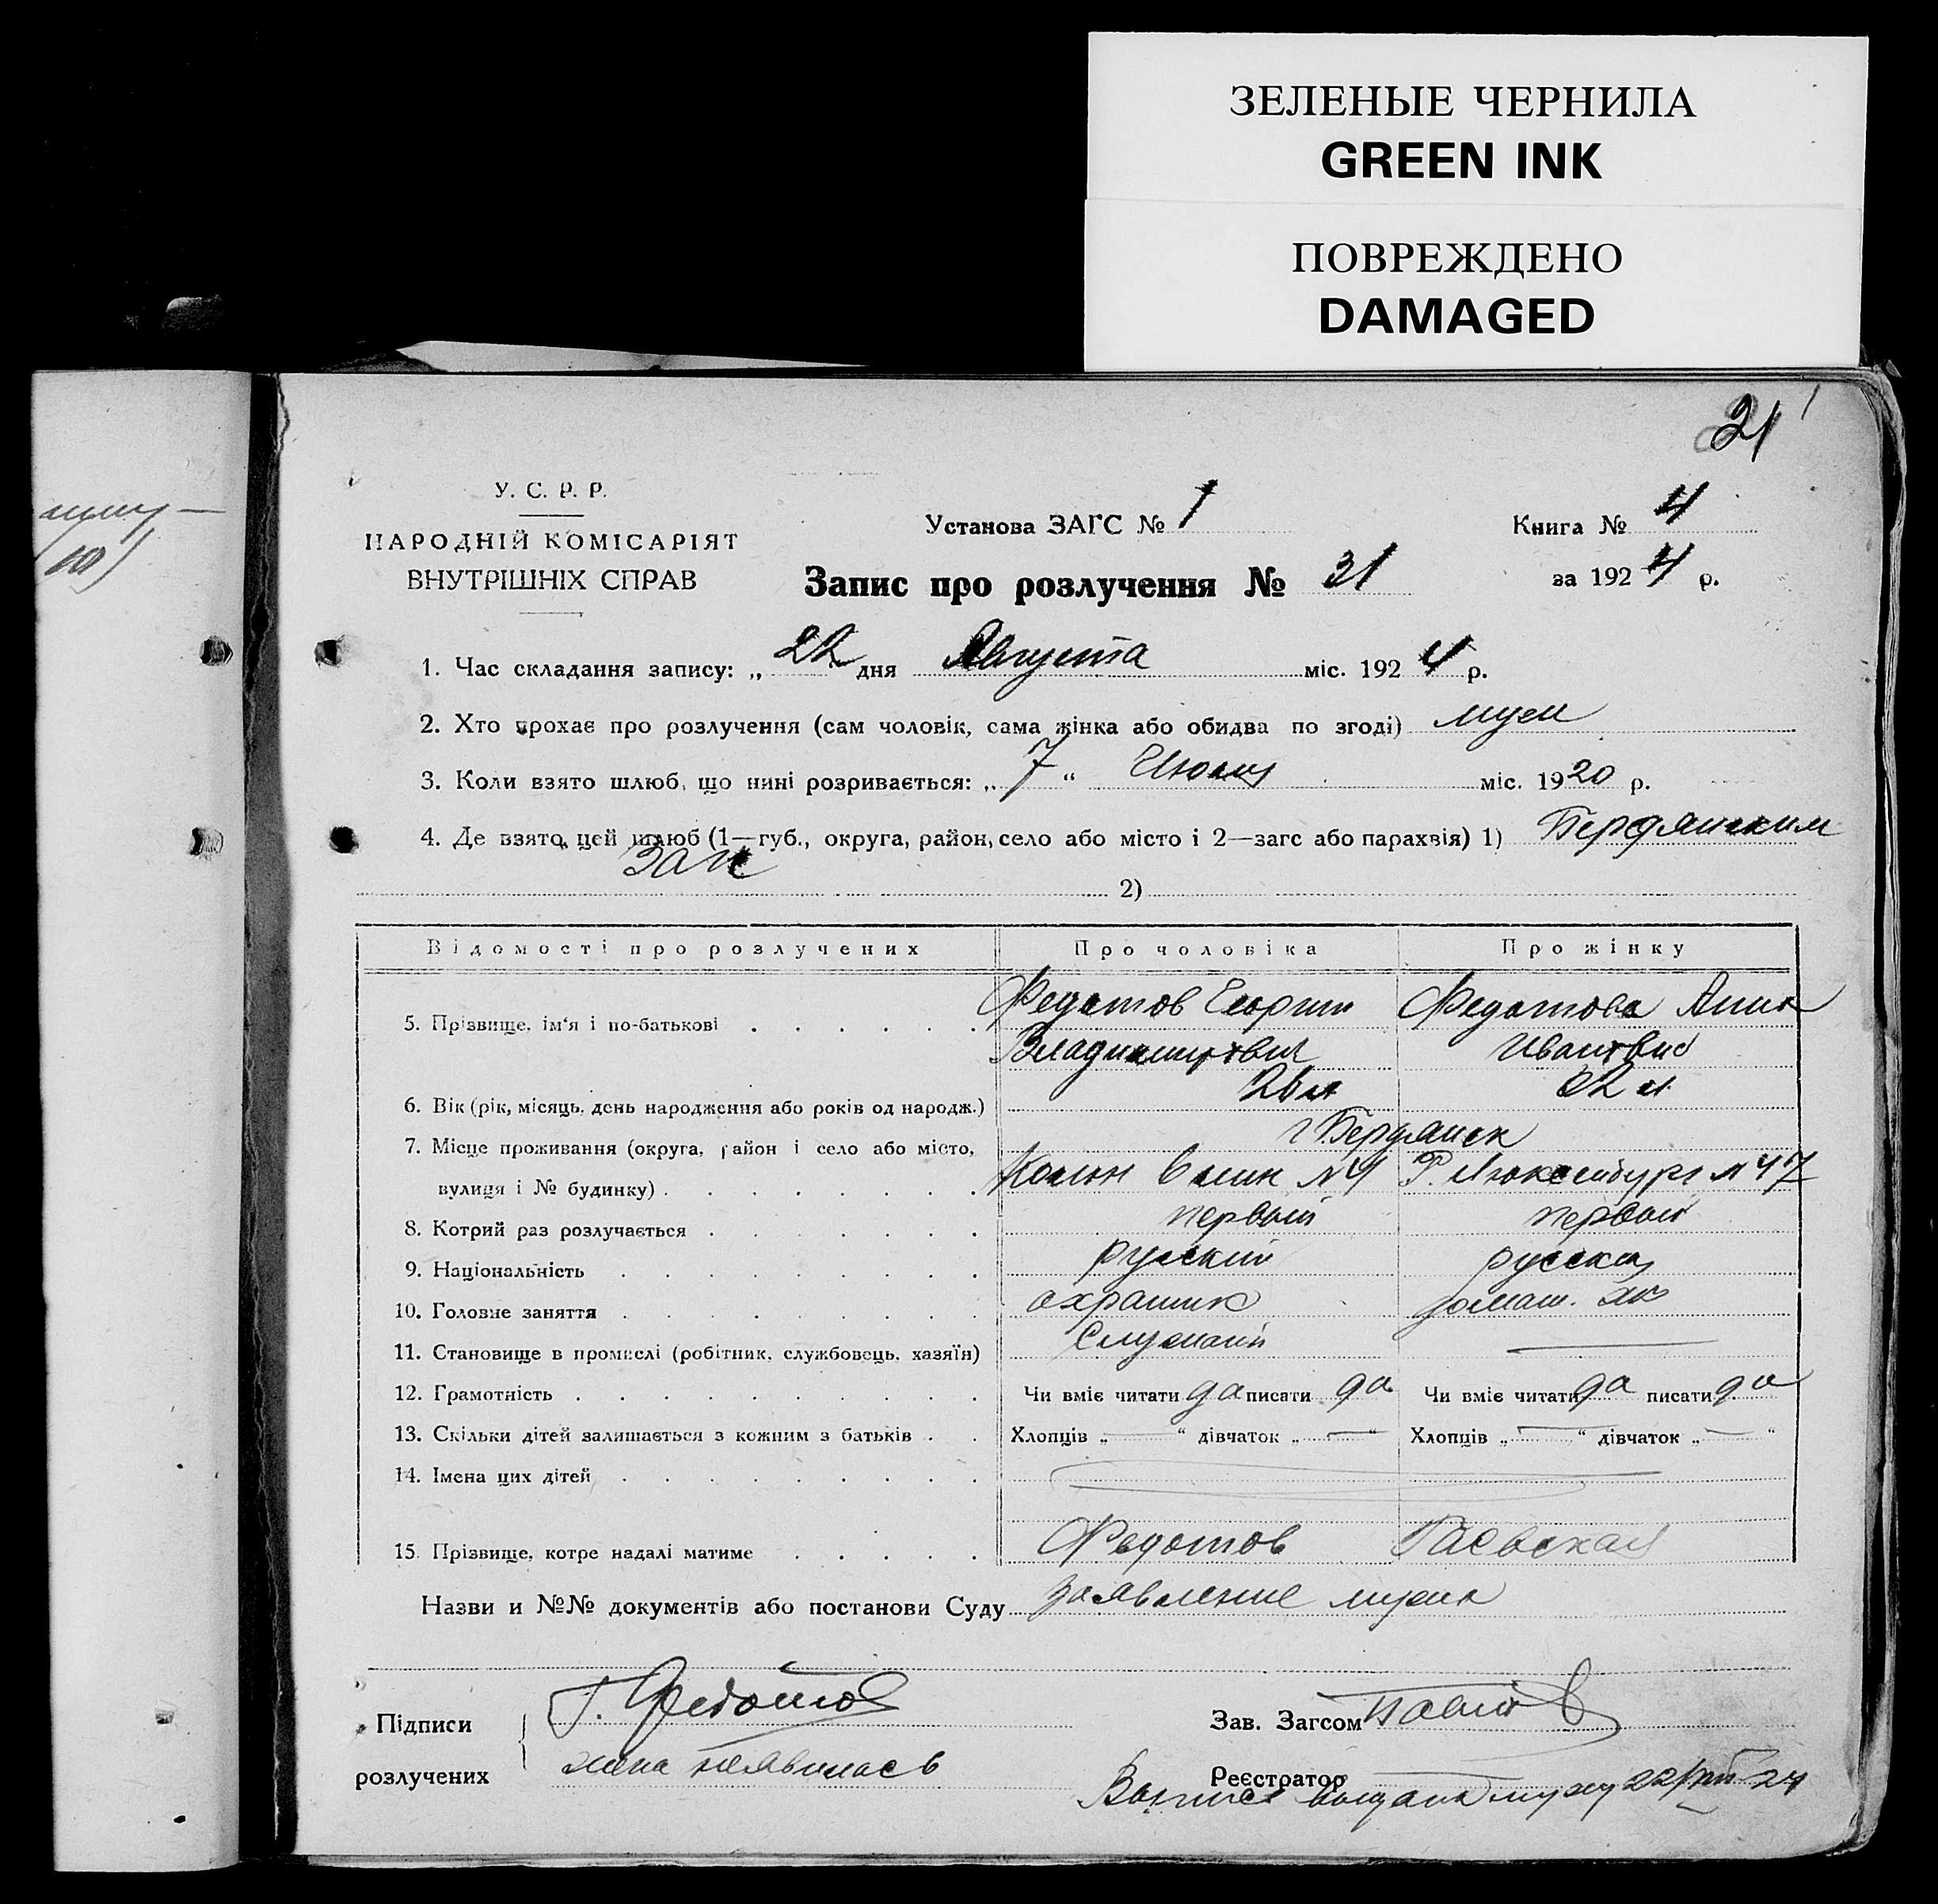 ЗЕЛЕНЫЕ ЧЕРНИЛА
GREEN INK
ПОВРЕЖДЕНО
DAMAGED
21
У. С. Р. Р.
НАРОДНІЙ КОМІСАРІЯТ
ВНУТРІШНІХ СПРАВ
Установа ЗАГС № 1
Книга № 4
Запис про розлучення № 31
за 1924 р.
1. Час складання запису: „ 22 дня Августа міс. 1924 р.
2. Хто прохає про розлучення (сам чоловік, сама жінка або обидва по згоді) муж
3. Коли взято шлюб, що нині розривається: „ 7 “ Июля міс. 1920 р.
4. Де взято цей шлюб (1—губ., округа, район, село або місто і 2—загс або парахвія) 1) Бердянским
2)
Відомості про розлучених Про чоловіка Про жінку
5. Прізвище, ім'я і по-батькові Федотов Георгий Федотова Анна
Владимирович Ивановна
6. Вік (рік, місяць, день народження або років од народж.) 26 л 22 л
7. Місце проживання (округа, район і село або місто, г Бердянск
вулиця і № будинку) Р. Люксембург № 47
8. Котрий раз розлучається первый первый
9. Національність русский русская
10. Головне заняття охраник домаш. хоз
11. Становище в промислі (робітник, службовець, хазяїн) Служащий —
12. Грамотність Чи вміє читати да писати да Чи вміє читати да писати да
13. Скільки дітей залишається з кожним з батьків Хлопців „ — “ дівчаток „ — “ Хлопців „ — “ дівчаток „ — “
14. Імена цих дітей
15. Прізвище, котре надалі матиме Федотов Раевская
Назви и №№ документів або постанови Суду заявление мужа
Підписи Г. Федотов Зав. Загсом
розлучених жена неявилась Реєстратор
выдана мужу 22/VIII 24